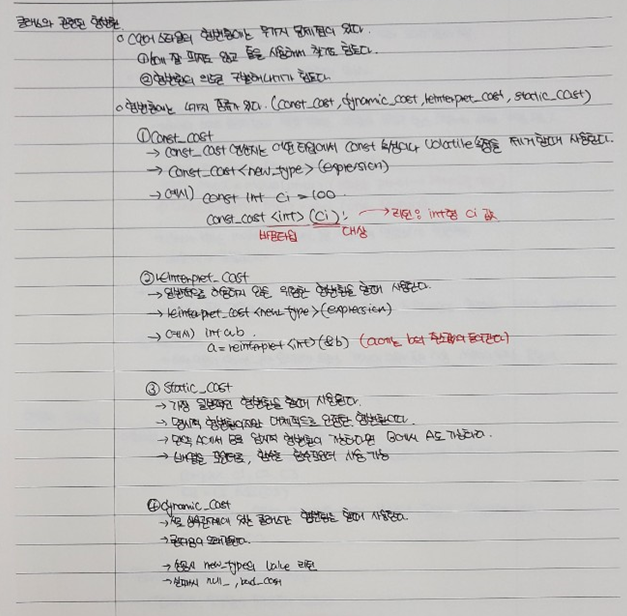 클래스와 관련된 형변환
o C언어 스타일의 형변환에는 몇가지 문제점이 있다.
① 눈에 잘 띄지도 않고 툴을 사용하여 찾기도 힘들다.
② 형변환의 의도를 구분해내기가 힘들다.
o 형변환에는 4가지 종류가 있다. (const_cast, dynamic_cast, reinterpret_cast, static_cast)
① const_cast
→ const_cast 연산자는 어떤 타입에서 const 속성이나 volatile 속성을 제거 할때 사용된다.
→ const_cast<new_type>(expression)
→ 예시) const int ci = 100
const_cast <int> (ci); → 리턴은 int형 ci 값
바꿀타입 대상
② reinterpret_cast
→ 일반적으로 허용하지 않는 위험한 형변환을 할때 사용된다.
→ reinterpret_cast <new_type>(expression)
→ 예시) int a,b.
a = reinterpret<int>(&b) (a에는 b의 주소값이 들어간다)
③ static_cast
→ 가장 일반적인 형변환을 할때 사용된다.
→ 명시적 형변환이지만 대체적으로 안전한 형변환이다.
→ 만약 A에서 B로 암시적 형변환이 가능하다면 B에서 A도 가능하다.
→ 배열을 포인터로, 함수를 함수포인터 사용 가능
④ dynamic_cast
→ 서로 상속관계에 있는 클래스간 형변환을 할때 사용된다.
→ 런타임에
→ 성공시 new_type의 value 리턴
→ 실패시 null_, bad_cast